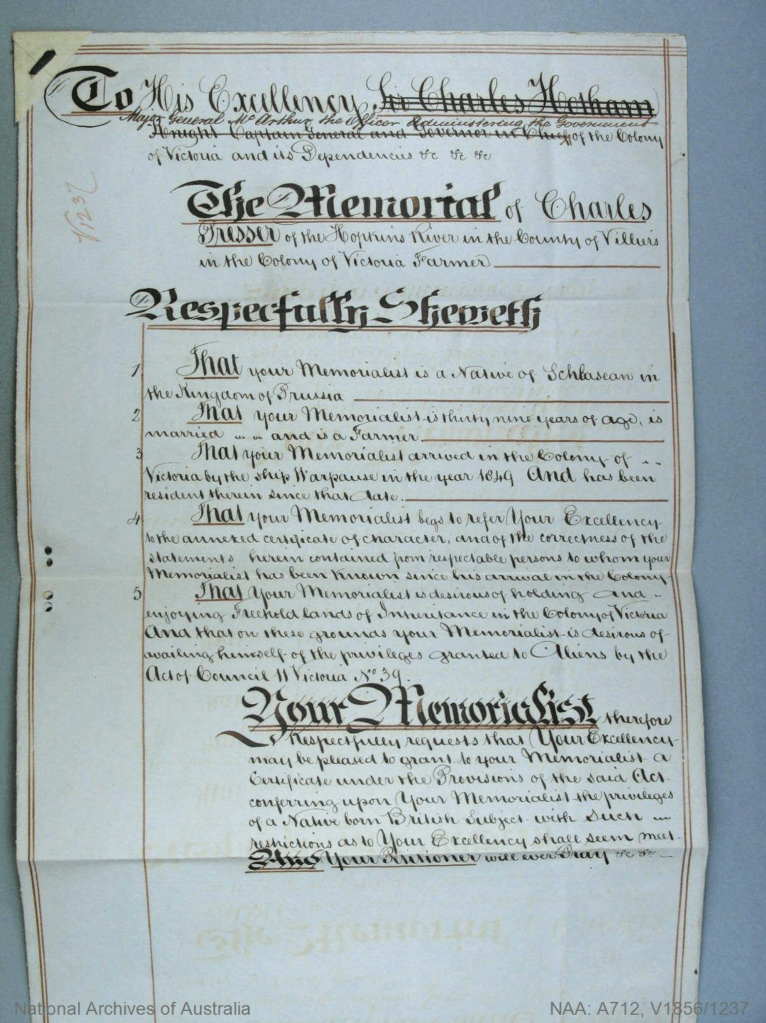 To His Excellency Sir Charles Hotham
Major General McArthur the Officer Administering the Government
Knight Captain General and Governor in Chief of the Colony
of Victoria and its Dependencies &c &c &c
V1237
The Memorial of Charles
Dresser of the Hopkins River in the County of Villiers
in the Colony of Victoria Farmer
Respectfully Sheweth
1 That your Memorialist is a Native of Schlasean in
the Kingdom of Prussia
2 That your Memorialist is thirty nine years of age, is
married and is a Farmer
3 That your Memorialist arrived in the Colony of
Victoria by the ship Warpause in the year 1849 And has been
resident therein since that date.
4 That your Memorialist begs to refer Your Excellency
to the annexed certificate of character, and of the correctness of the
statements herein contained from respectable persons to whom your
Memorialist has been known since his arrival in the Colony
5 That Your Memorialist is desirous of holding and
enjoying Freehold lands of Inheritance in the Colony of Victoria
And that on these grounds your Memorialist is desirous of
availing himself of the privileges granted to Aliens by the
Act of Council 11 Victoria No 39.
Your Memorialist therefore
Respectfully requests that Your Excellency
may be pleased to grant to your Memorialist a
Certificate under the Provisions of the said Act
conferring upon Your Memorialist the privileges
of a Native born British Subject with such
restrictions as to Your Excellency shall seem meet
And Your Petitioner will ever Pray &c &c
National Archives of Australia
NAA: A712, V1856/1237